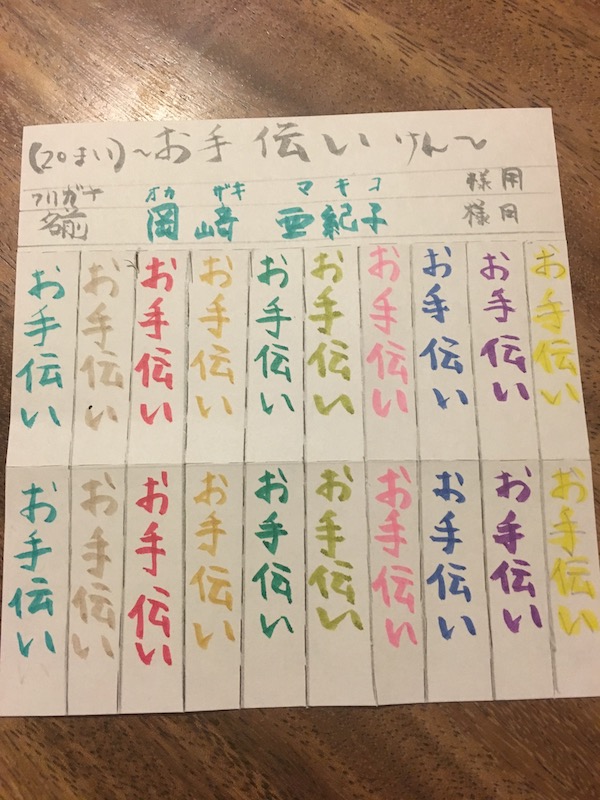 (20まい)～お手伝いけん～
フリガナ オカ ザキ マキコ 様用
名前 岡崎 亜紀子 様用
お手伝い お手伝い お手伝い お手伝い お手伝い お手伝い お手伝い お手伝い お手伝い お手伝い
お手伝い お手伝い お手伝い お手伝い お手伝い お手伝い お手伝い お手伝い お手伝い お手伝い